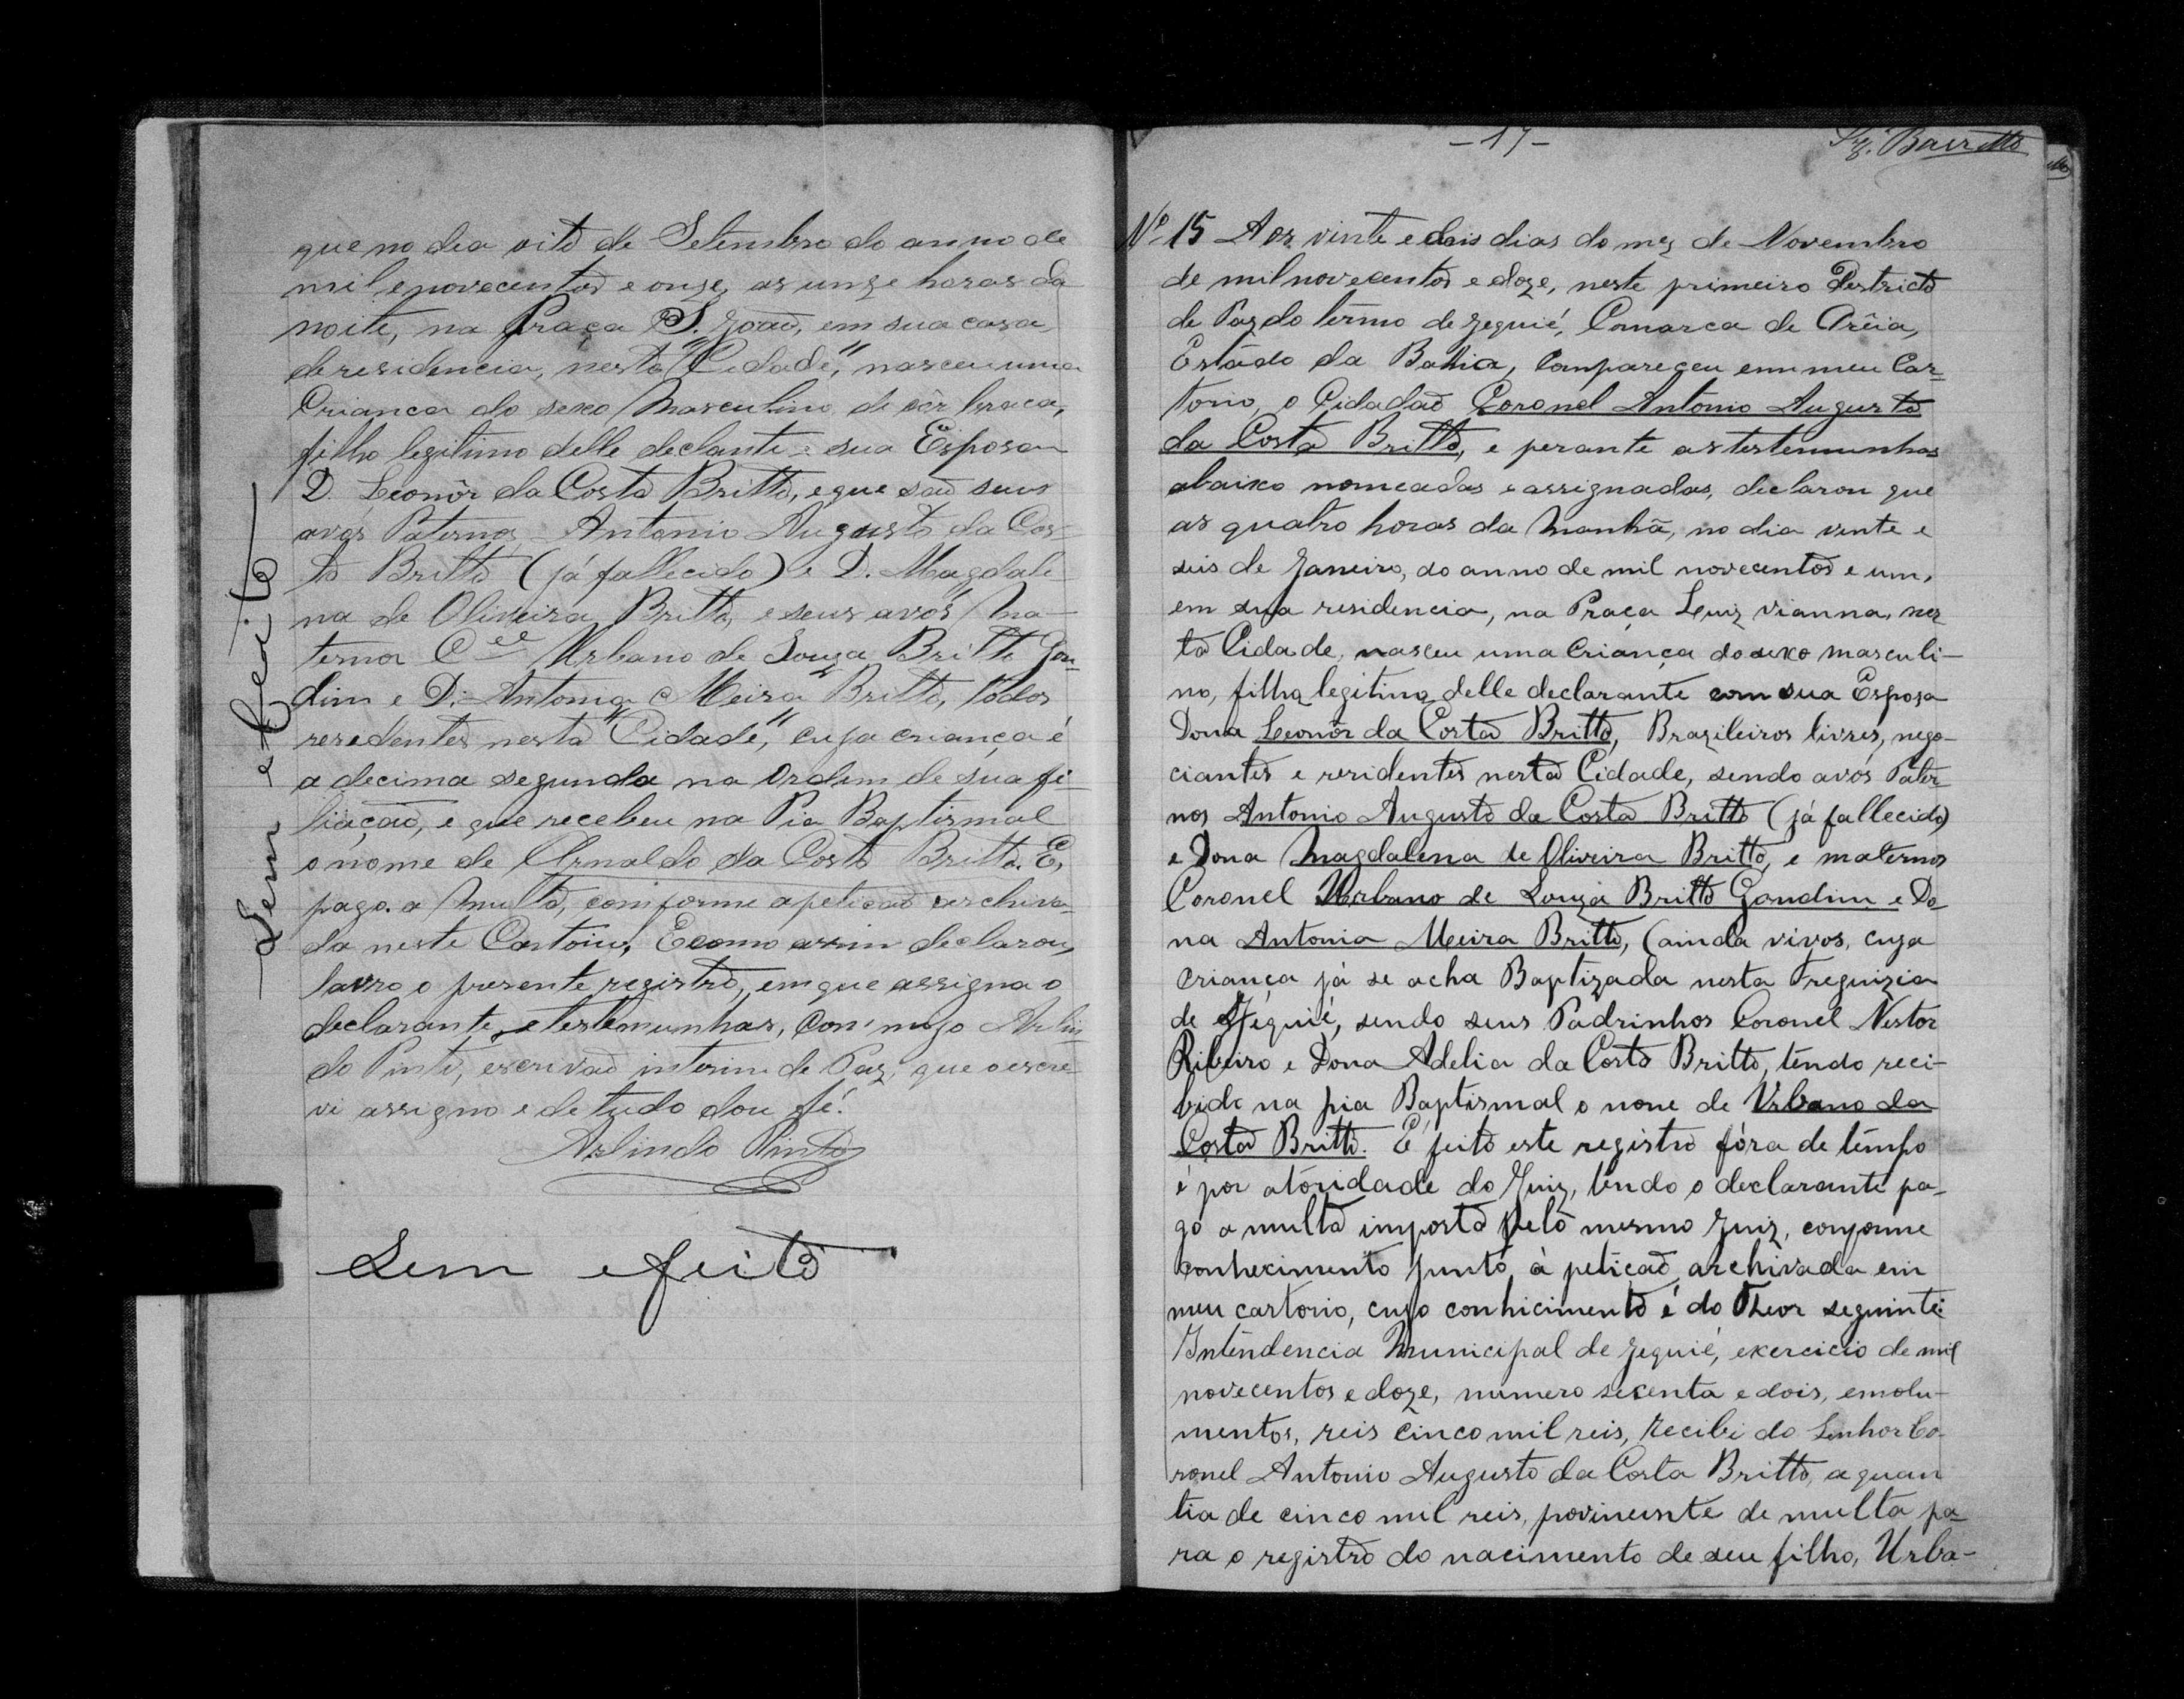 que no dia oito de Setembro do anno de
mil e novecentos e onze, as unze horas da
noite, na Praça S. João, em sua casa
de residencia, nesta "Cidade", nasceu uma
Criança do sexo Masculino de côr braca,
filho legitimo delle declante e sua Esposa
D. Leonôr da Costa Britto, e que são seus
avós Paternos - Antonio Augusto da Cos-
ta Britto (já fallecido) e D. Magdale
na de Oliveira Britto, e seus avós Ma-
ternos Cel Urbano de Souza Britto Gon-
dim e D. Antonia Meira Britto, todos
residentes nesta "Cidade", cuja criança é
a decima segunda na Ordem de sua fi-
liação, e que recebeu na Pia Baptismal
o nome de Arnaldo da Costa Britto. E,
pago a multa, comforme a petição archiva-
da neste Cartoiro, E como assim declarou,
lavro o presente registro, em que assigna o
declarante e testemunhas, commigo Arlin-
do Pinto, escrivão interino de Paz, que o escre-
vi assigno e de tudo dou fé.
Arlindo Pinto
Sem efeito
Sem efeito
- 17 -
Barretto
Nº 15 Aos vinte e dois dias do mez de Novembro
de mil novecentos e doze, neste primeiro Destricto
de Paz do têrmo de Jequié, Comarca de Arêia,
Estado da Bahia, compareceu em meu Car-
torio, o Cidadão Coronel Antonio Augusto
da Costa Britto, e perante as testemunhas
abaixo nomeadas e assignadas, declarou que
as quatro horas da Manhã, no dia vinte e
seis de Janeiro, do anno de mil novecentos e um,
em sua residencia, na Praça Luiz Vianna, nes
ta Cidade, nasceu uma Criança do sexo masculi-
no, filha legitima delle declarante com sua Esposa
Dona Leonôr da Costa Britto, Brazileiros livres, nego-
ciantes e residentes nesta Cidade, sendo avós Pater-
nos Antonio Augusto da Costa Britto (já fallecido)
e Dona Magdalena de Oliveira Britto, e maternos
Coronel Urbano de Souza Britto Gondim e Do-
na Antonia Meira Britto, (ainda vivos, cuja
criança já se acha Baptizada nesta Freguizia
de Jéquié, sendo seus Padrinhos Coronel Nestor
Ribeiro e Dona Adelia da Costa Britto, têndo reci-
bido na pia Baptismal o nome de Urbano da
Costa Britto. E feito este registro fóra de têmpo
é por atóridade do Juiz, têndo o declarante pa-
go a multa imposta pelo mesmo Juiz, conforme
conhecimento junto à petição archivada em
meu cartorio, cujo conhicimento é do Theor seguinte:
Intêndencia Municipal de Jequié, exercicio de mil
novecentos e doze, numero secenta e dois, emolu-
mentos, reis cinco mil reis, Recibi do Senhor Co-
ronel Antonio Augusto da Costa Britto, a quan
tia de cinco mil reis, provineinte de multa pa-
ra o registro do nacimento de seu filho, Urba-